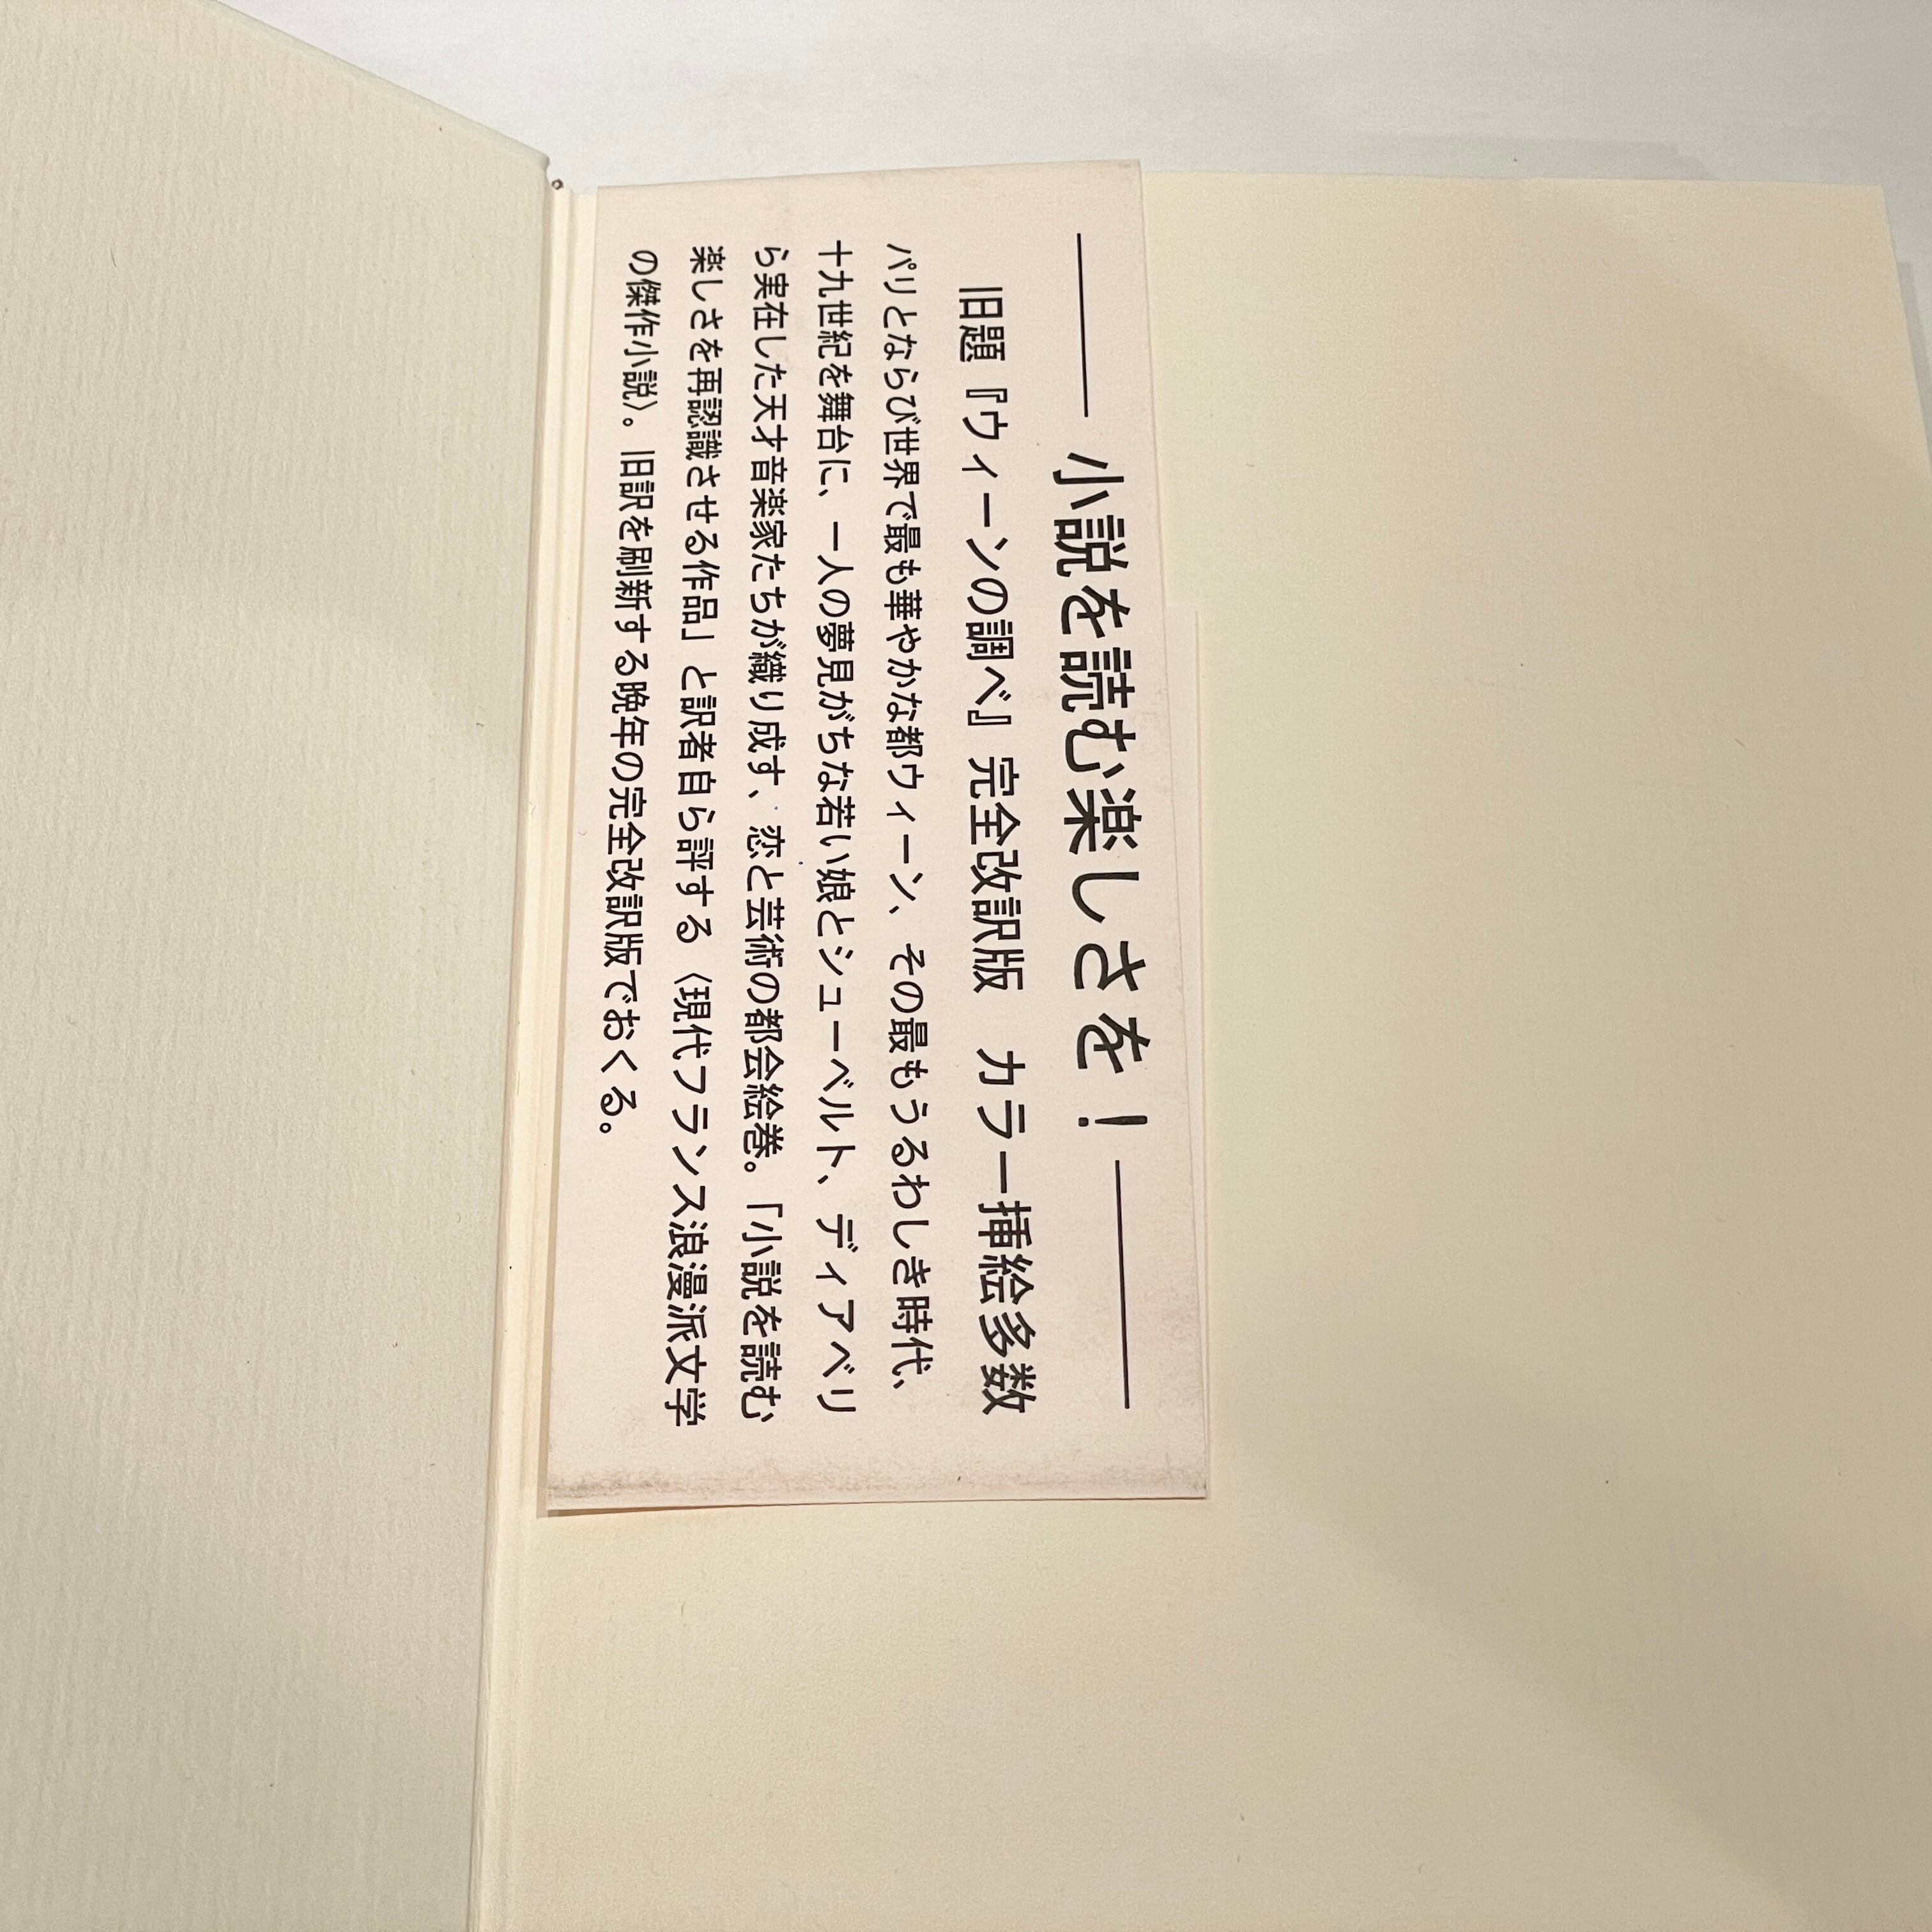 小説を読む楽しさを!
旧題『ウィーンの調べ』完全改訳版 カラー挿絵多数
パリとならび世界で最も華やかな都ウィーン、その最もうるわしき時代、
十九世紀を舞台に、一人の夢見がちな若い娘とシューベルト、ディアベリ
ら実在した天才音楽家たちが織り成す、恋と芸術の都会絵巻。「小説を読む
楽しさを再認識させる作品」と訳者自ら評する〈現代フランス浪漫派文学
の傑作小説〉。旧訳を刷新する晩年の完全改訳版でおくる。